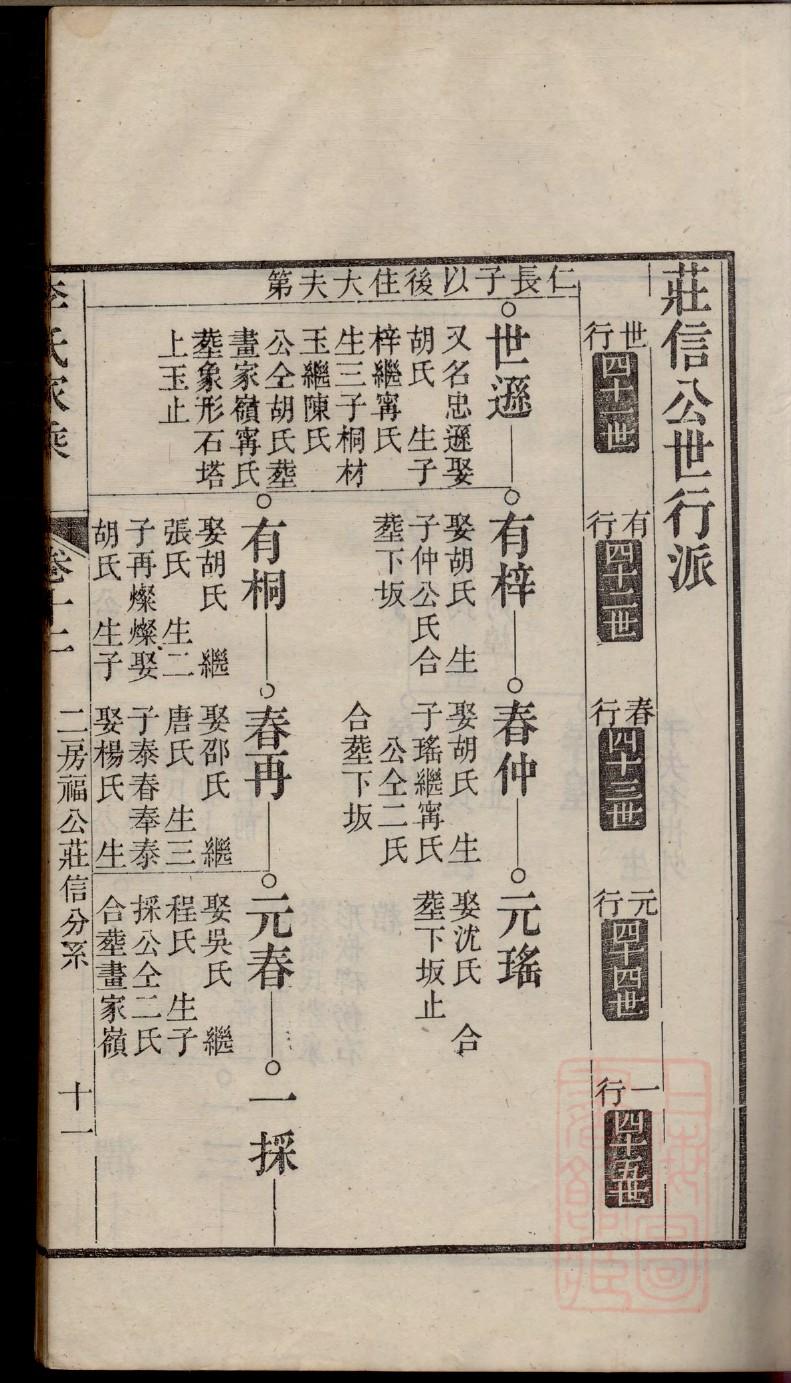 莊信公世行派
世行
四十一世
有行
四十二世
春行
四十三世
元行
四十四世
一行
四十五世
仁長子以後住大夫第
世遜
又名忠遜娶
胡氏 生子
梓繼甯氏
生三子桐材
玉繼陳氏
公仝胡氏塟
畫家嶺甯氏
塟象形石塔
上玉止
有梓
娶胡氏 生
子仲公氏合
塟下坂
春仲
娶胡氏 生
子瑤繼甯氏
公仝二氏
合塟下坂
元瑤
娶沈氏 合
塟下坂止
有桐
娶胡氏 繼
張氏 生二
子再燦燦娶
胡氏 生子
春再
娶邵氏 繼
唐氏 生三
子泰春奉泰
娶楊氏 生
元春
娶吳氏 繼
程氏 生子
採公仝二氏
合塟畫家嶺
一採
李氏家乘
卷十二
二房福公莊信分系
十一